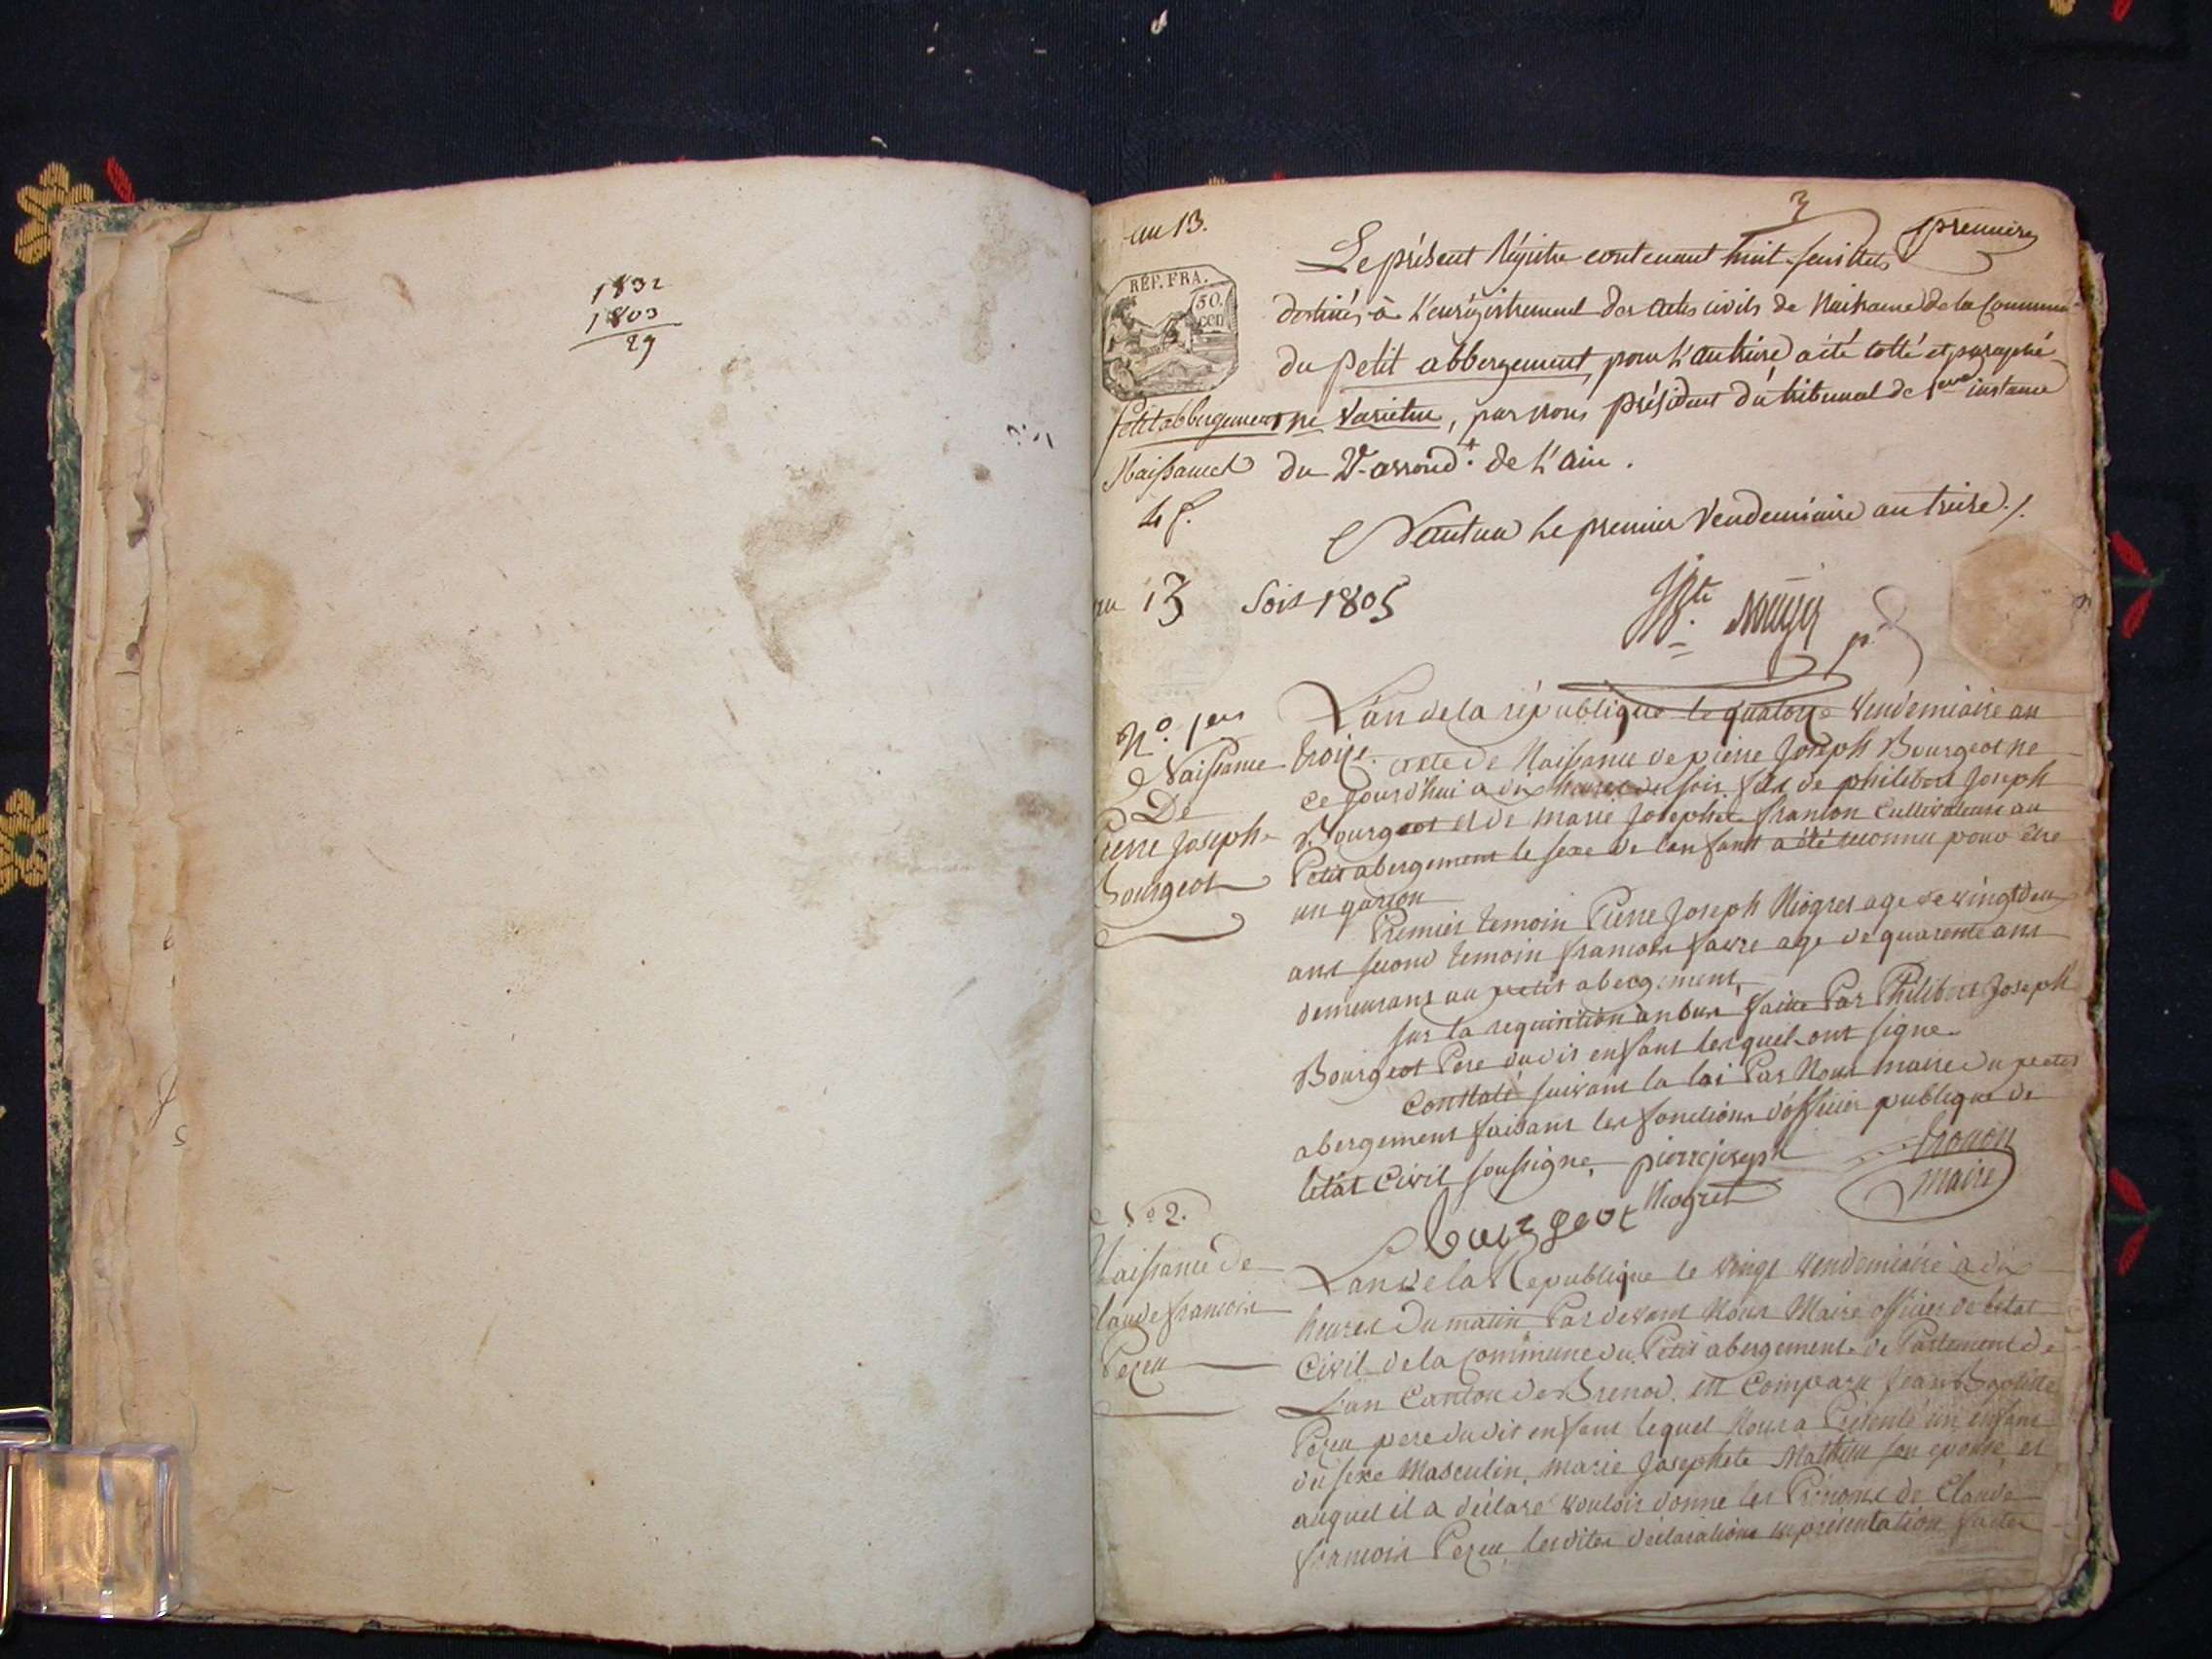 1832
1803
29
an 13.
3
premier
RÉP. FRA.
50.
cen
Le présent Régistre contenant huit feuillets
destinés à l'enrégistrement des actes civils de Naissance de la Commune
du petit abbergement, pour l'an treize, a été cotté et paraphé
petit abbergement
ne varietur, par nous président du tribunal de 1ere instance
Naissances
du 2e arrond.t de l'ain.
4 f.
Nantua le premier Vendemiaire an treize ./.
an 13 soit 1805
N.o 1er
Naissance
De
pierre Joseph
Bourgeot
L'an de la république le quatorze Vendemiaire an
treize. acte de Naissance de pierre Joseph Bourgeot ne
ce jourd'hui a dix heures du soir fils de philibert Joseph
Bourgeot et de marie Josephete franton Cultivateure au
Petit abergement le sexe de lenfant a été reconnu pour être
un garcon
Premier temoin Pierre Joseph Niogret age de vingt deux
ans second temoin francois favre age de quarente ans
demeurans au petit abergement,
sur la requisition a nous faitte Par Philibert Joseph
Bourgeot Pere dudit enfant lesquel ont signe
Constaté suivant la loi Par Nous maire du petit
abergement faisant les fonctions d'officier publique de
letat Civil soussigne, pierre joseph
Niogret
maire
bourgeot
No 2.
Naissance de
Claude francois
Pezeu
Lan de la Republique le vingt vendemiaire à dix
heures du matin Par devant Nous Maire officier de letat
Civil de la Commune du Petit abergement departement de
L'ain Canton de Brenod. est Comparu Jean Baptiste
Pezeu pere dudit enfant lequel Nous a Présenté un enfant
du sexe Masculin, marie Josephete Mathieu son epouse, et
auquel il a déclaré vouloir donne les Prenoms de Claude
francois Pezeu, lesdites déclarations et présentation faites